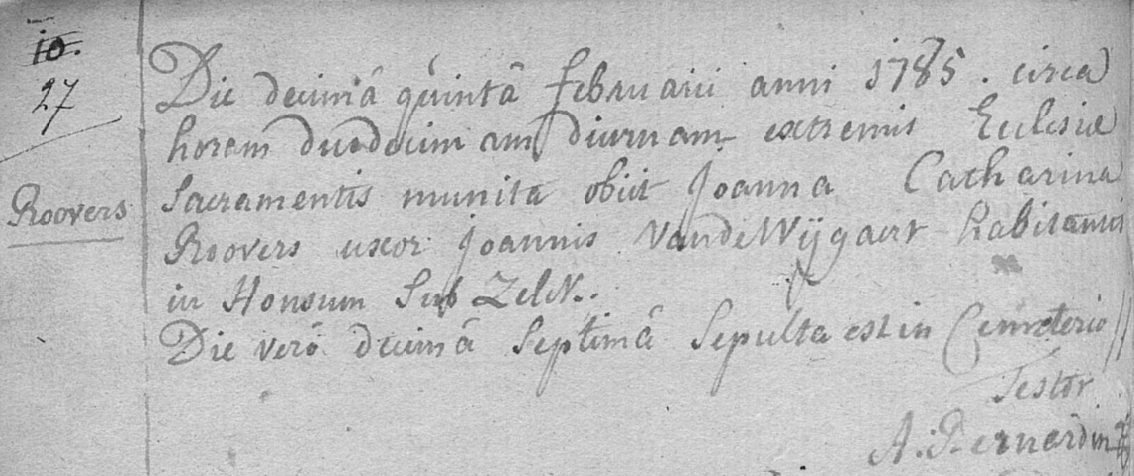 10.
27
Roovers
Die decimâ quintâ februarii anni 1785. circa
horam duodecimam diurnam extremis Eclesiæ
Sacramentis munita obiit Joanna Catharina
Roovers uxor Joannis VandeWijgaert habitantis
in Honsum Sub Zelk.
Die verò decimâ Septimâ Sepulta est in Cemeterio
Testor
A. Bernardin